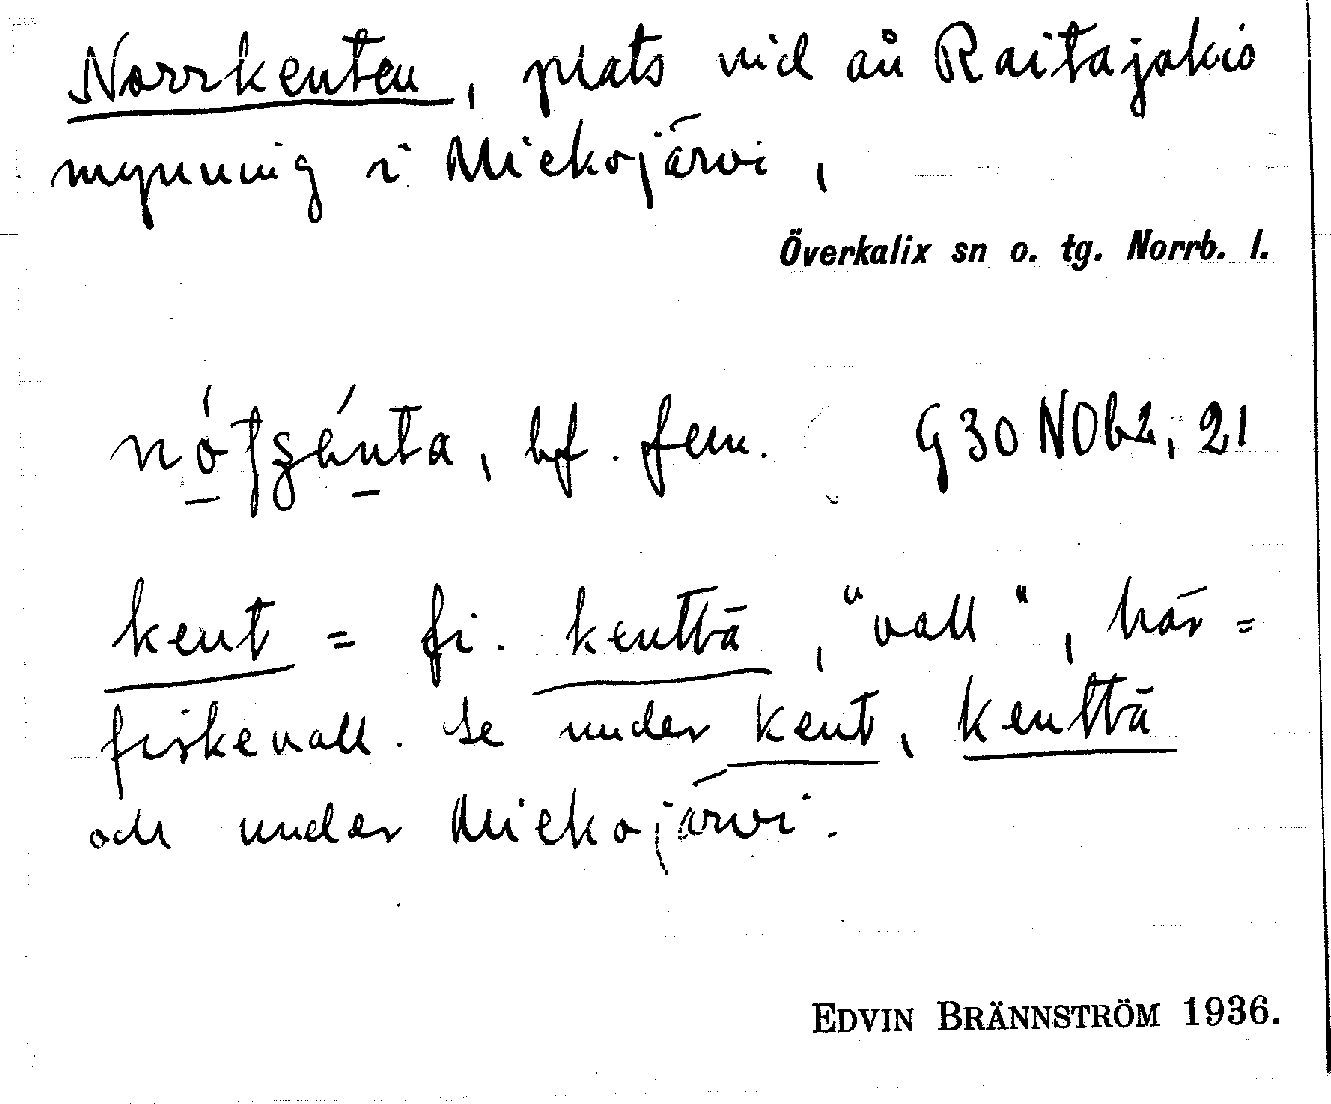 Norrkenten, plats vid ån Raitajokis
mynning i Miekojärvi,
Överkalix sn o. tg. Norrb. l.
bf. fem. G 30 NOb2, 21
kent = fi. kenttä, "vall", här =
fiskevall. Se under kent, kenttä
och under Miekojärvi.
EDVIN BRÄNNSTRÖM 1936.